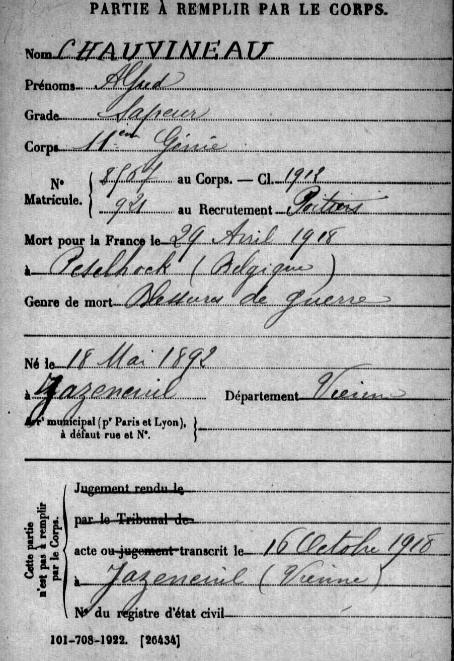 PARTIE À REMPLIR PAR LE CORPS.
Nom CHAUVINEAU
Prénoms Alfred
Grade Sapeur
Corps 11em Génie
N° Matricule. au Corps. — Cl. 1912
921 au Recrutement Poitiers
Mort pour la France le 29 Avril 1918
à Peselhock (Belgique)
Genre de mort Blessures de guerre
Né le 18 Mai 1892
à Jazeneuil Département Vienne
Arrt municipal (pr Paris et Lyon),
à défaut rue et N°.
Cette partie
n'est pas à remplir
par le Corps.
Jugement rendu le
par le Tribunal de
acte ou jugement transcrit le 16 Octobre 1918
à Jazeneuil (Vienne)
N° du registre d'état civil
101-708-1922. [26434]